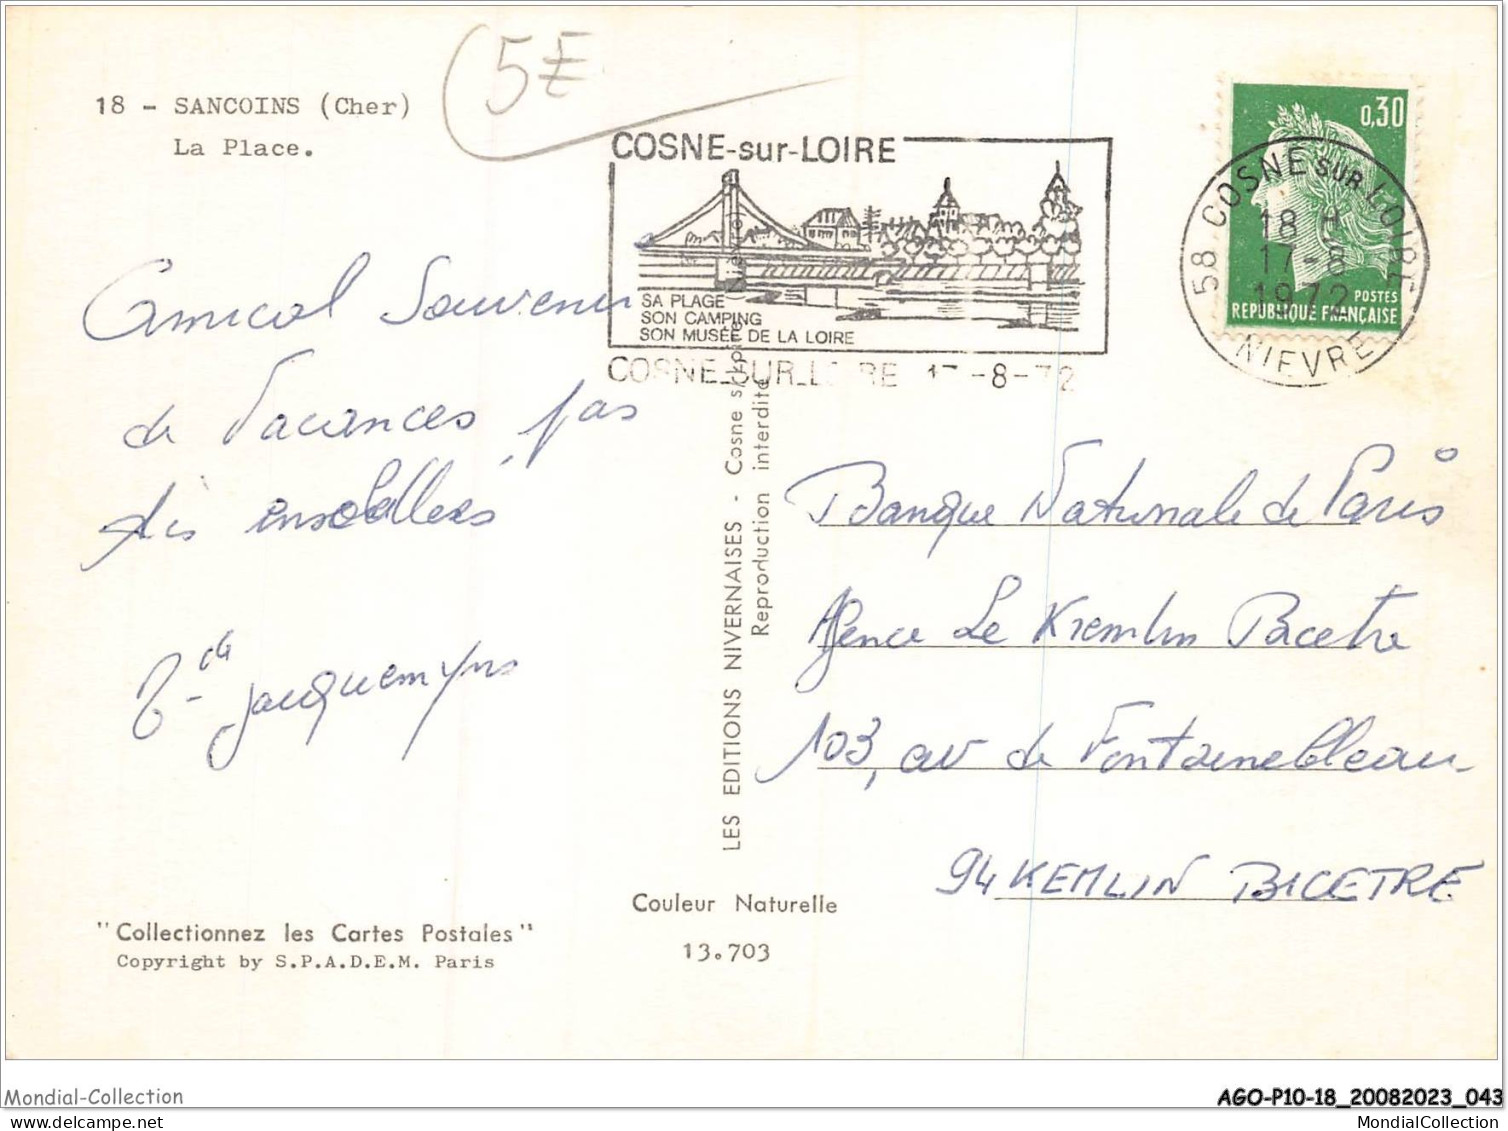 5€
18 - SANCOINS (Cher)
La Place.
COSNE-sur-LOIRE
SA PLAGE
SON CAMPING
SON MUSÉE DE LA LOIRE
COSNE-SUR-LOIRE 17-8-72
0,30
POSTES
REPUBLIQUE FRANÇAISE
58 COSNE SUR LOIRE
18 H
17-8
1972
NIEVRE
Amical Souvenir
de Vacances, pas
très ensoleillées
Jacquemyns
LES EDITIONS NIVERNAISES - Cosne s/Loire (Nièvre)
Reproduction interdite
Banque Nationale de Paris
Agence Le Kremlin Bicetre
103, av de Fontainebleau
94 KEMLIN BICETRE
"Collectionnez les Cartes Postales"
Copyright by S.P.A.D.E.M. Paris
Couleur Naturelle
13.703
Mondial-Collection
AGO-P10-18_20082023_043
Mondial-Collection.com
MondialCollection